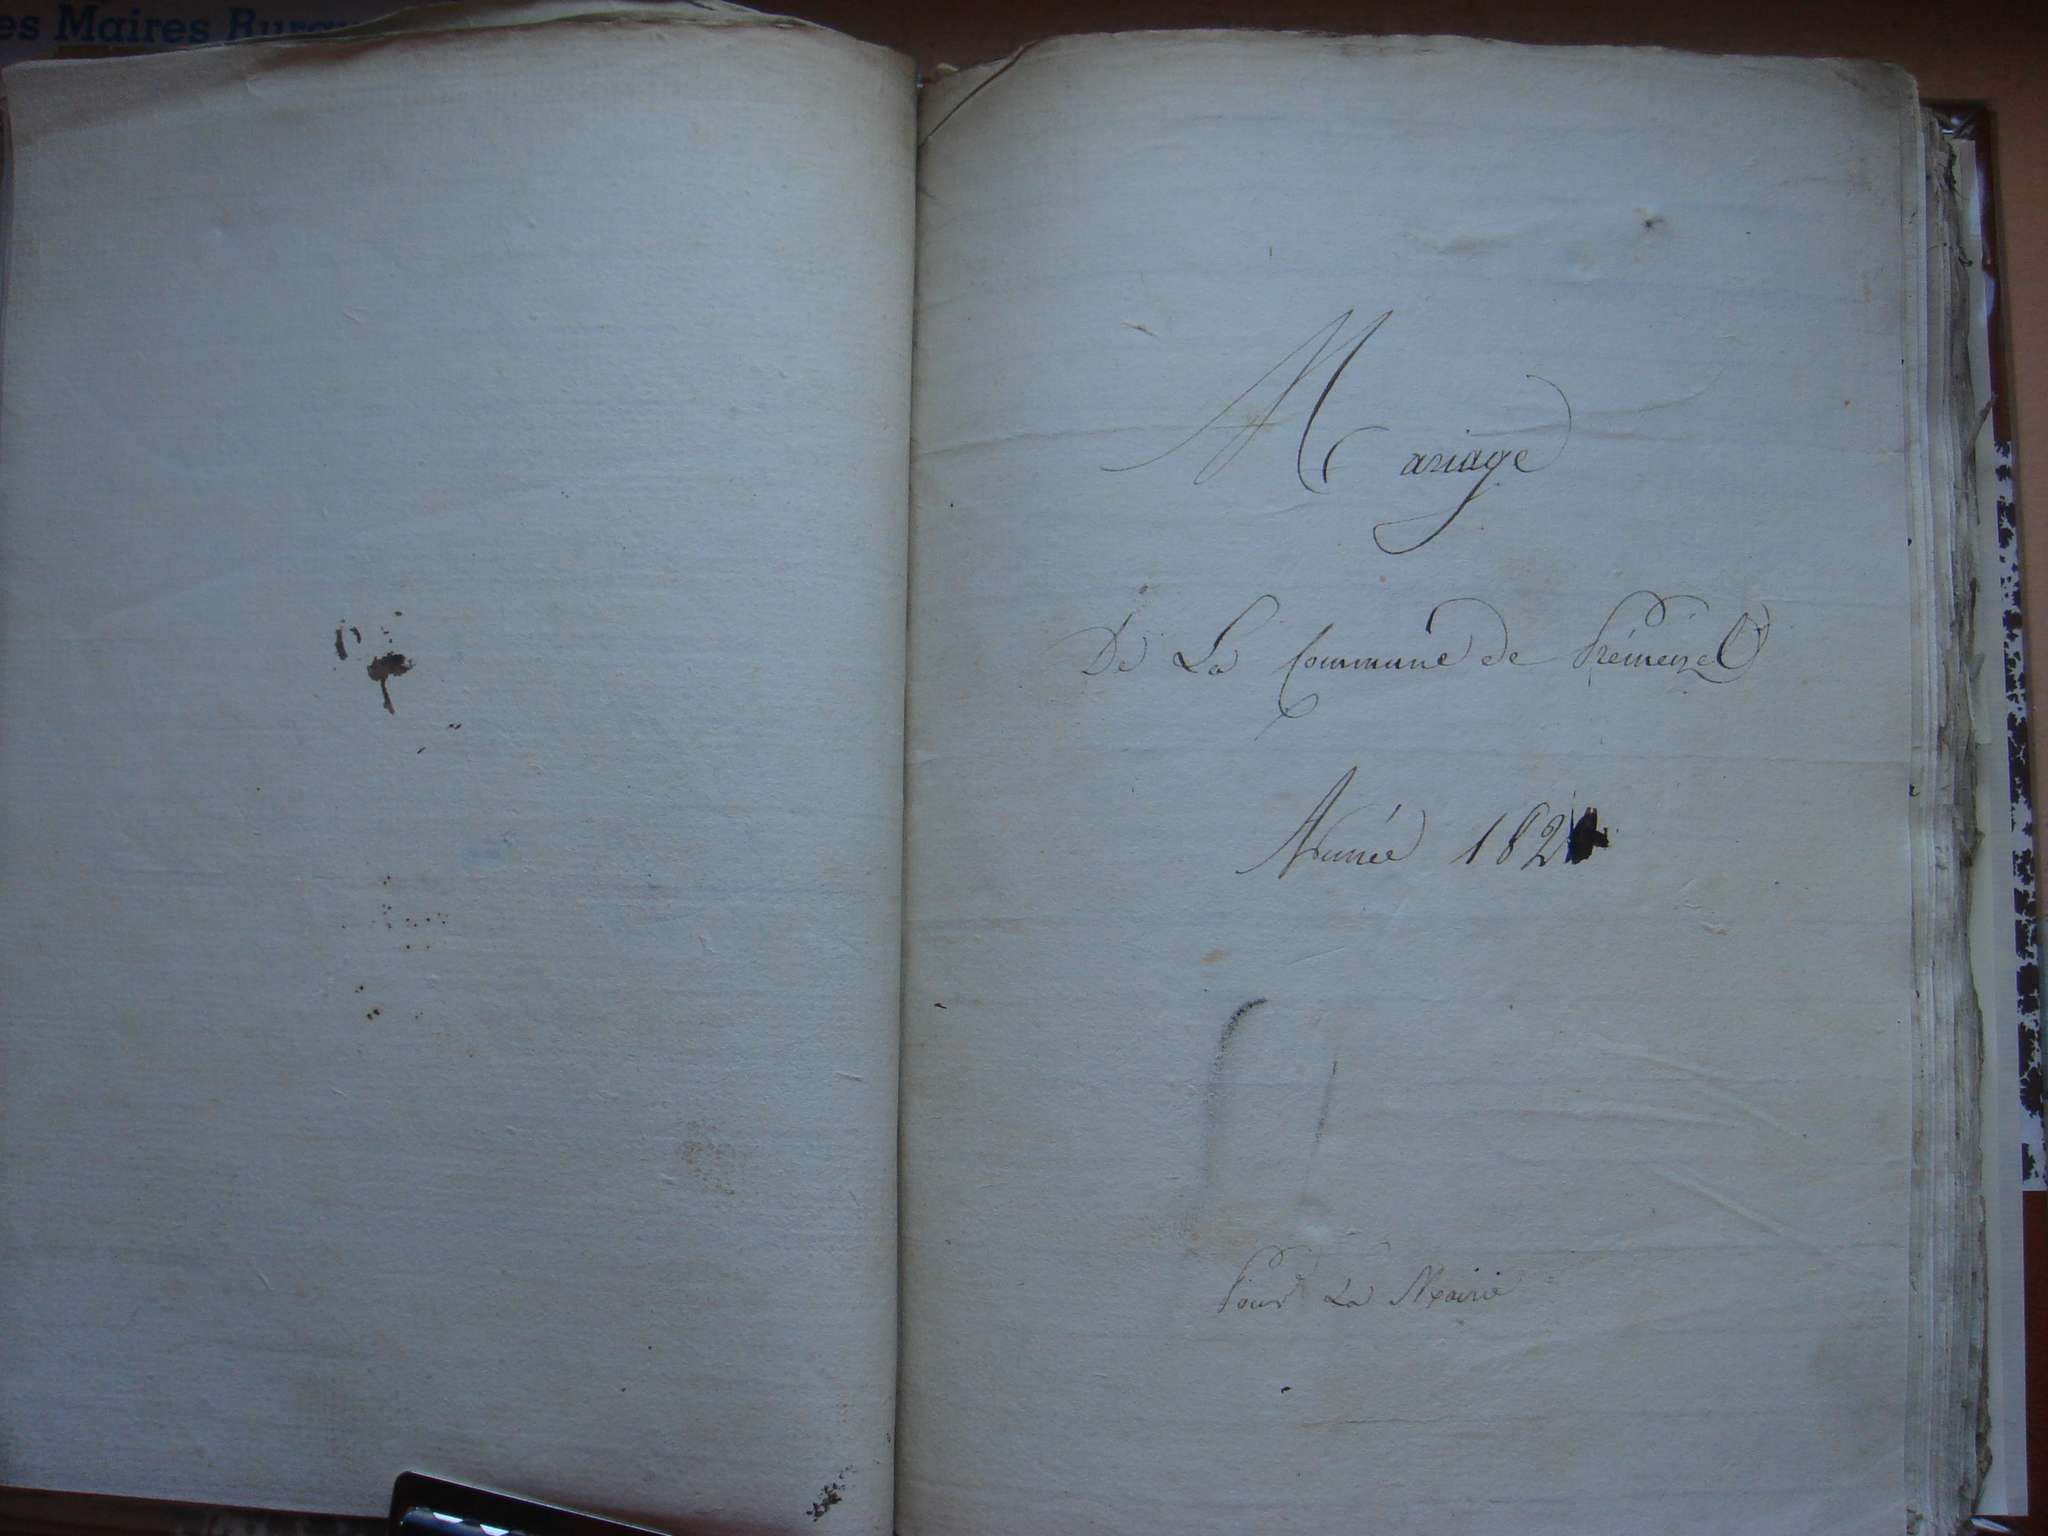 es Maires Rura
Mariage
De La Commune de Fréménil
Année 182
Pour La Mairie